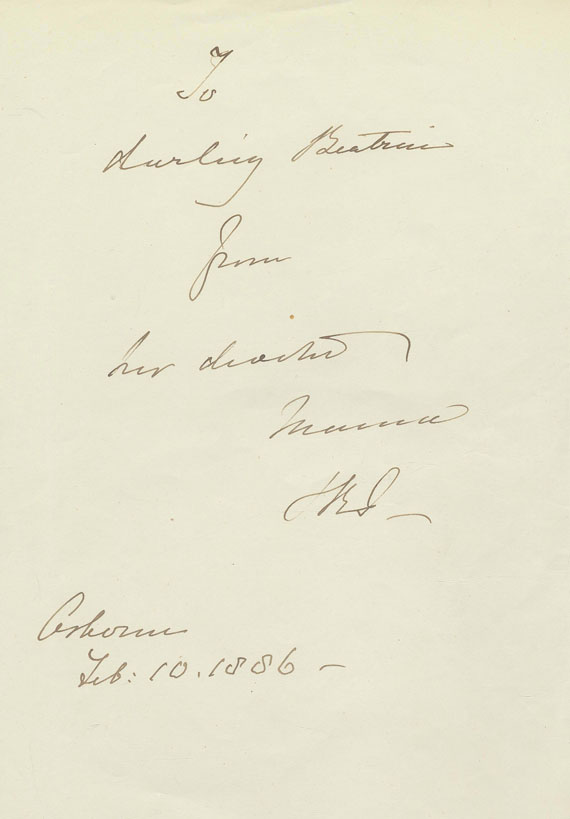 To
darling Beatrice
from
her devoted
Mama
VRI_
Osborne
Feb: 10. 1886 –